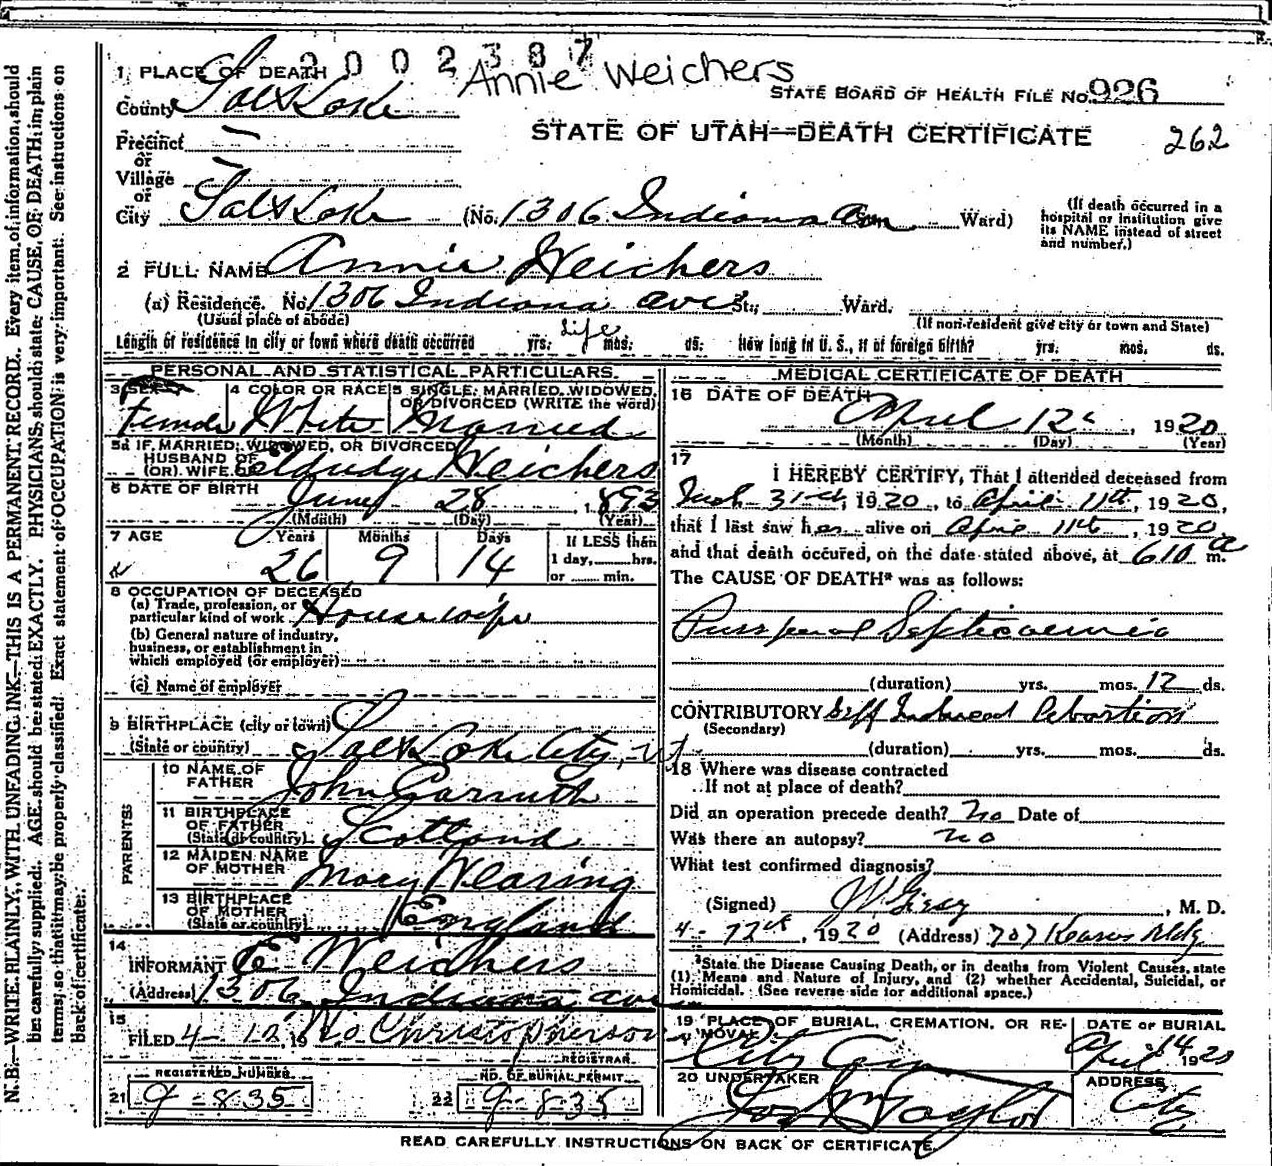 2002387
Annie Weichers
1 PLACE OF DEATH
County Salt Lake
STATE BOARD OF HEALTH FILE No. 926
STATE OF UTAH—DEATH CERTIFICATE
262
Precinct
or
Village
or
City Salt Lake (No. 1306 Indiana Ave Ward)
(If death occurred in a hospital or institution give its NAME instead of street and number.)
2 FULL NAME Annie Weichers
(a) Residence. No. 1306 Indiana ave St., Ward.
(Usual place of abode) (If non-resident give city or town and State)
Length of residence in city or town where death occurred yrs. life mos. ds. How long in U. S., if of foreign birth? yrs. mos. ds.
PERSONAL AND STATISTICAL PARTICULARS.
3 SEX Female
4 COLOR OR RACE White
5 SINGLE, MARRIED, WIDOWED, OR DIVORCED (WRITE the word) Married
5a IF MARRIED, WIDOWED, OR DIVORCED
HUSBAND OF
(OR) WIFE OF Eldridge Weichers
6 DATE OF BIRTH June 28, 1893
(Month) (Day) (Year)
7 AGE Years Months Days
26 9 14
If LESS than
1 day, hrs.
or min.
8 OCCUPATION OF DECEASED
(a) Trade, profession, or
particular kind of work Housewife
(b) General nature of industry,
business, or establishment in
which employed (or employer)
(c) Name of employer
9 BIRTHPLACE (city or town)
(State or country) Salt Lake City, Ut
PARENTS
10 NAME OF
FATHER John Carruth
11 BIRTHPLACE
OF FATHER
(State or country) Scotland
12 MAIDEN NAME
OF MOTHER Mary Wearing
13 BIRTHPLACE
OF MOTHER
(State or country) England
14
INFORMANT E Weichers
(Address) 1306 Indiana ave
15
FILED 4-12, 19 20 Christopherson
REGISTRAR
REGISTERED NUMBER
21 9-835
NO. OF BURIAL PERMIT
22 9-835
MEDICAL CERTIFICATE OF DEATH
16 DATE OF DEATH
April 12, 1920
(Month) (Day) (Year)
17
I HEREBY CERTIFY, That I attended deceased from
31st, 1920, to April 11th, 1920,
that I last saw her alive on April 11th, 1920
and that death occured, on the date stated above, at 610 a m.
The CAUSE OF DEATH* was as follows:
Puerperal Septicaemia
(duration) yrs. mos. 12 ds.
CONTRIBUTORY Self Induced Abortion
(Secondary)
(duration) yrs. mos. ds.
18 Where was disease contracted
If not at place of death?
Did an operation precede death? no Date of
Was there an autopsy? no
What test confirmed diagnosis?
(Signed) , M. D.
4-12th, 1920 (Address) 707 Kearns Bldg
*State the Disease Causing Death, or in deaths from Violent Causes, state
(1) Means and Nature of Injury, and (2) whether Accidental, Suicidal, or
Homicidal. (See reverse side for additional space.)
19 PLACE OF BURIAL, CREMATION, OR REMOVAL
City Cem
DATE OF BURIAL
April 14 1920
20 UNDERTAKER
Jos Wm Taylor
ADDRESS
City
READ CAREFULLY INSTRUCTIONS ON BACK OF CERTIFICATE.
N. B.—WRITE PLAINLY, WITH UNFADING INK—THIS IS A PERMANENT RECORD. Every item of information should
be carefully supplied. AGE should be stated EXACTLY. PHYSICIANS should state CAUSE OF DEATH in plain
terms, so that it may be properly classified. Exact statement of OCCUPATION is very important. See instructions on
back of certificate.